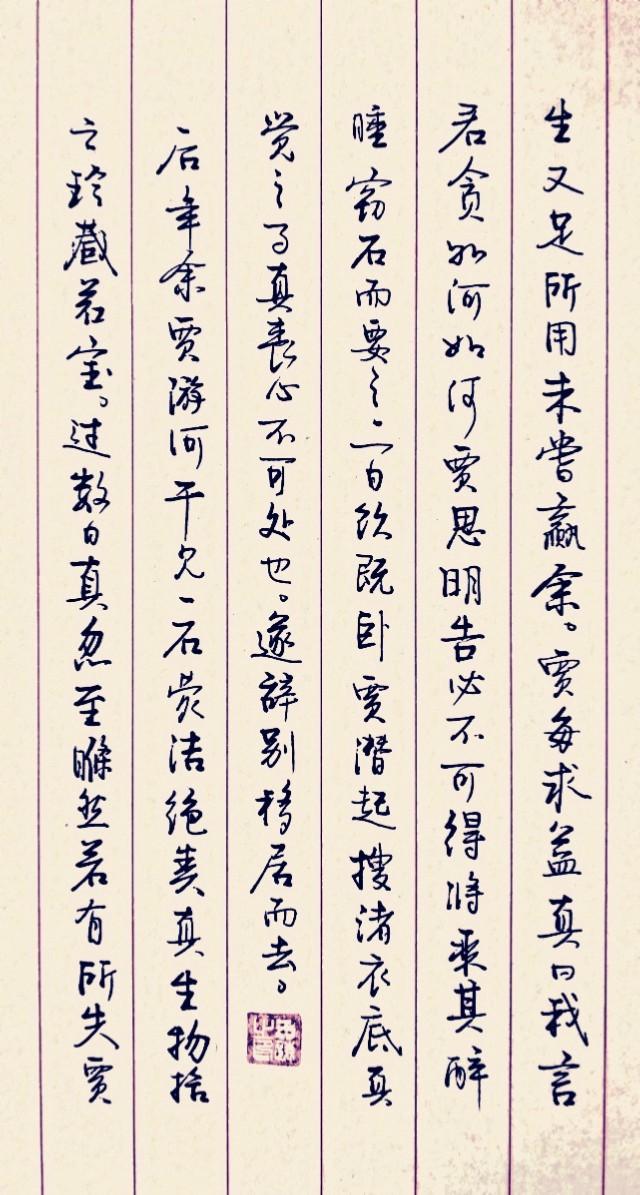 生又足所用未尝赢余。贾每求益真曰我言
君贪如何如何贾思明告必不可得将乘其醉
睡窃石而要之一日饮既卧贾潜起搜诸衣底真
觉之曰真丧心不可处也。遂辞别移居而去。
后年余贾游河干见一石莹洁绝类真生物拾
之珍藏若宝。过数日真忽至然若有所失贾